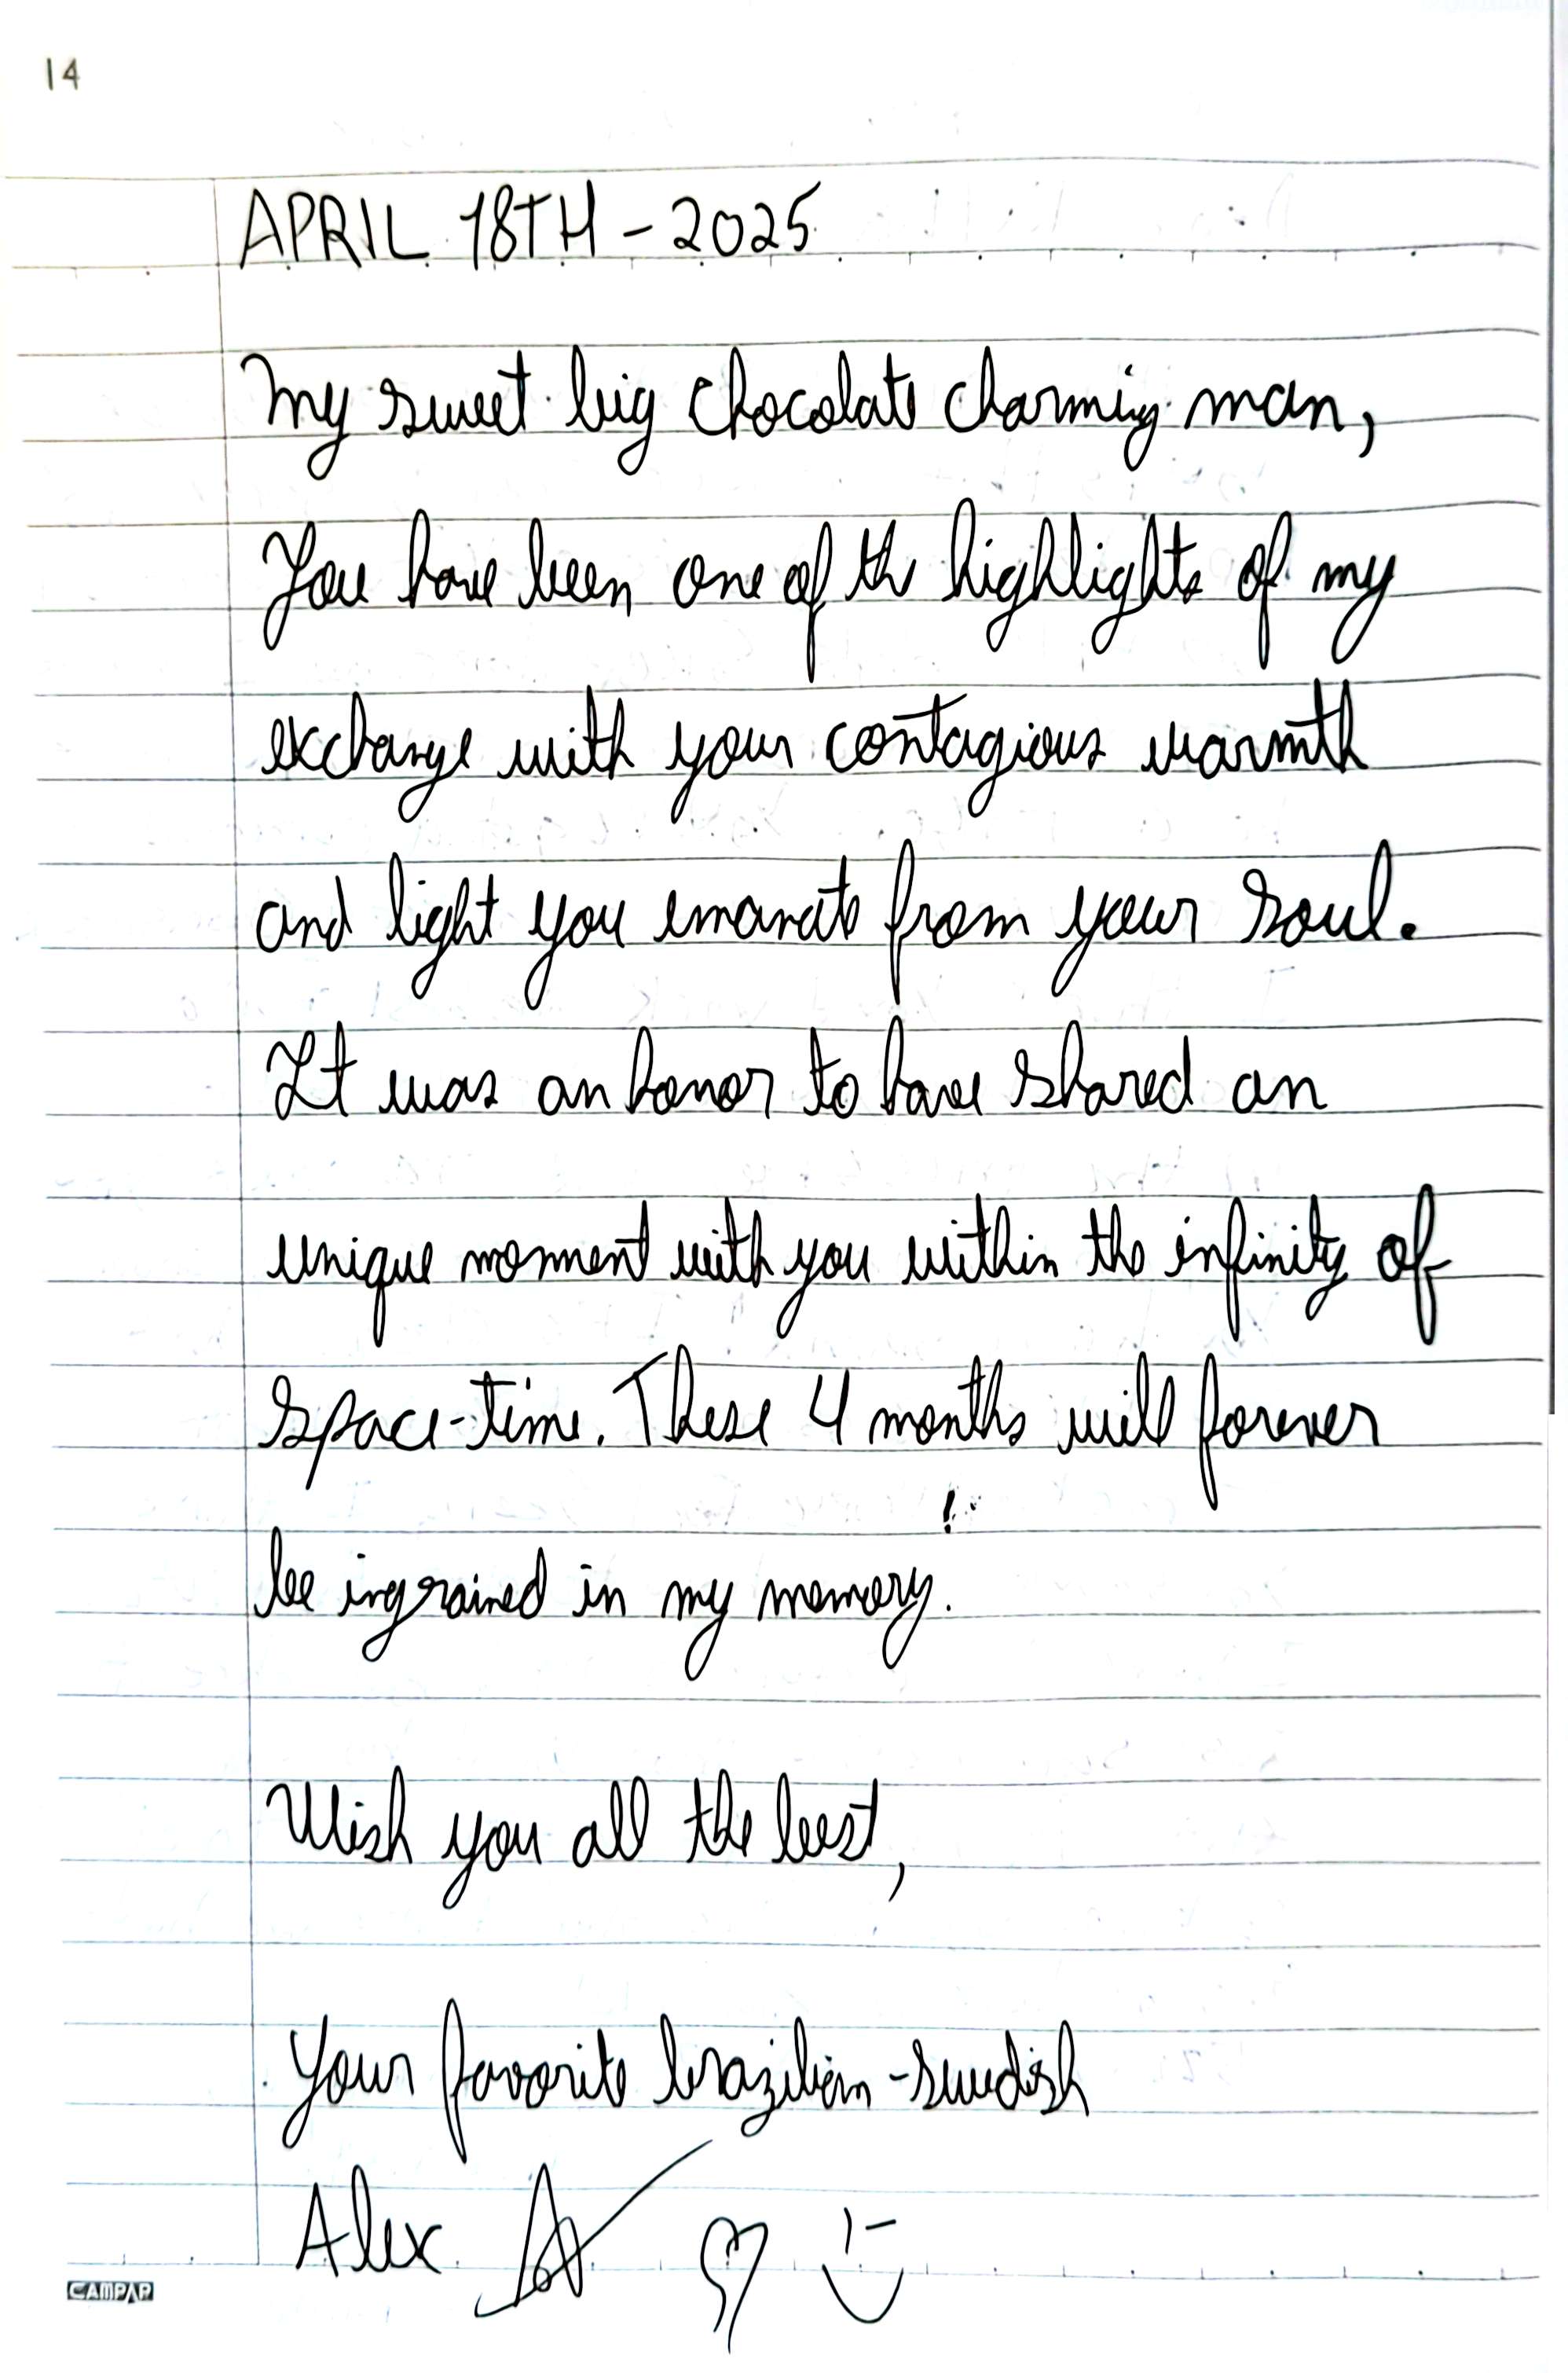 14
APRIL 18TH - 2025
My sweet big chocolate charming man,
You have been one of the highlights of my
exchange with your contagious warmth
and light you emanate from your soul.
It was an honor to have shared an
unique momment with you within the infinity of
space-time. These 4 months will forever
be ingrained in my memory!
Wish you all the best,
Your favorite brazilian-swedish
Alex
CAMPAP